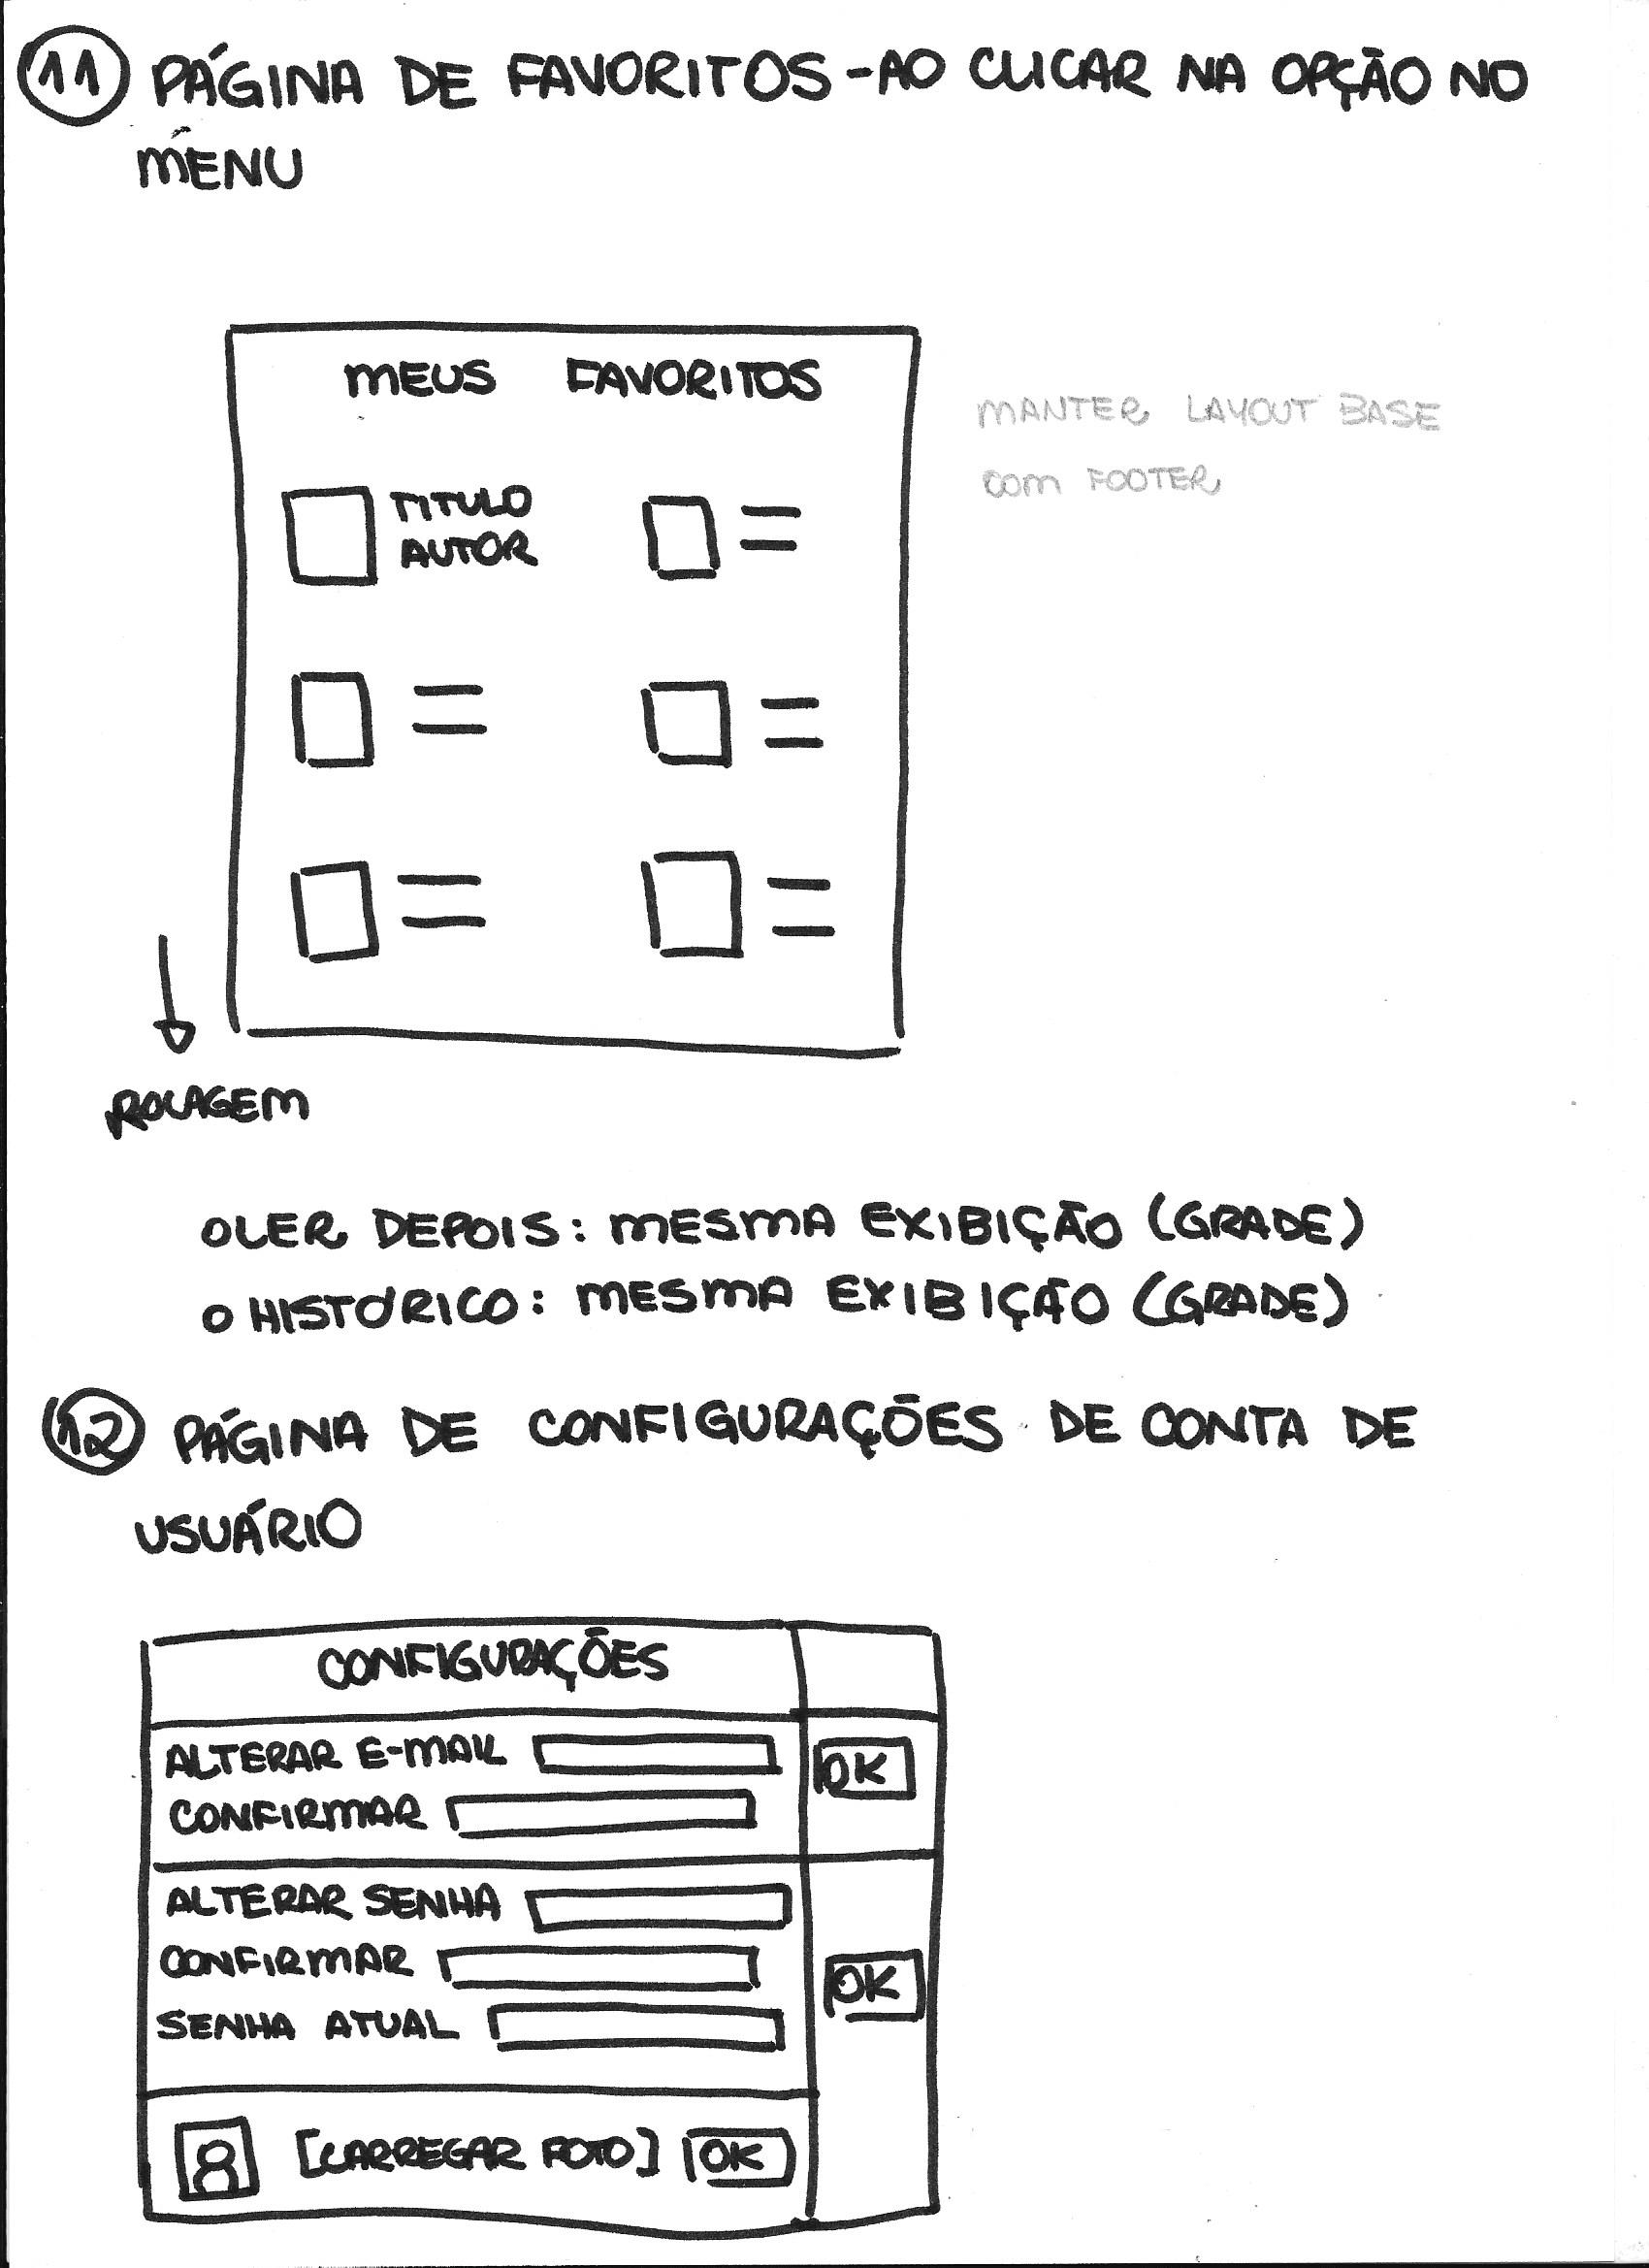 11 PÁGINA DE FAVORITOS - AO CLICAR NA OPÇÃO NO
MENU
MEUS FAVORITOS
MANTER LAYOUT BASE
COM FOOTER
TITULO
AUTOR
ROLAGEM
O LER DEPOIS: MESMA EXIBIÇÃO (GRADE)
O HISTÓRICO: MESMA EXIBIÇÃO (GRADE)
12 PÁGINA DE CONFIGURAÇÕES DE CONTA DE
USUÁRIO
CONFIGURAÇÕES
ALTERAR E-MAIL
OK
CONFIRMAR
ALTERAR SENHA
CONFIRMAR
OK
SENHA ATUAL
[CARREGAR FOTO] OK